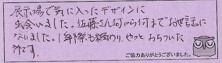 展示場で気に入ったデザインに
出会いました。佐藤さんには何から何までお世話に
なりました。1年間も経ち、やっとおちついた
所です。
ご協力ありがとうございました。